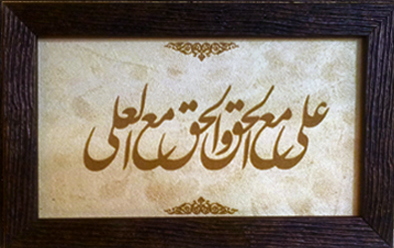 علی مع الحق والحق مع العلی